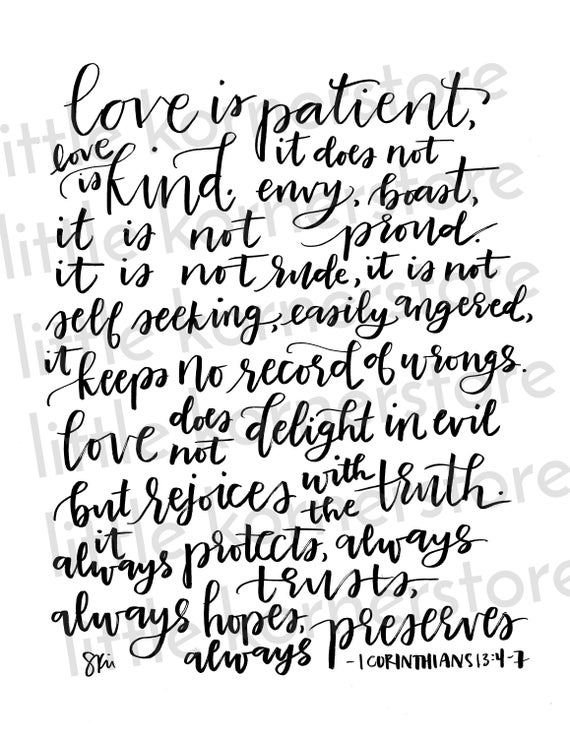 love is patient,
love is kind. it does not
envy, boast,
it is not proud.
it is not rude, it is not
self seeking, easily angered,
it keeps no record of wrongs.
love does not delight in evil
but rejoices with the truth.
it always protects, always
trusts,
always hopes,
always preserves
-1 CORINTHIANS 13:4-7
little kornerstore
little kornerstore
little kornerstore
little kornerstore
little kornerstore
little kornerstore